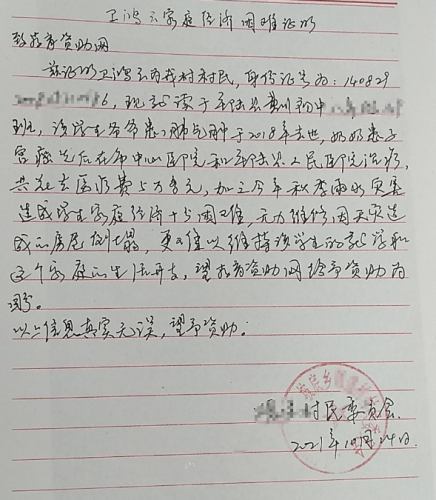 卫鸿云家庭经济困难证明
致教育资助网
兹证明卫鸿云为我村村民，身份证号为：140829
6，现就读于平陆县 初中
班，该学生爷爷患肺气肿于2018年去世，奶奶患子
宫癌先后在市中心医院和平陆县人民医院治疗，
共花去医疗费5万余元，加之今年秋季雨水更是
造成学生家庭经济十分困难，无力维修因天灾造
成的房屋倒塌，更难以维持该学生的就学和
这个家庭的生活开支，望教育资助网给予资助为
盼。
以上信息真实无误，望予资助。
村民委员会
2021年10月24日